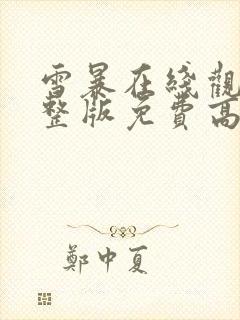 雪暴在线觀
整版免費高
鄭中夏